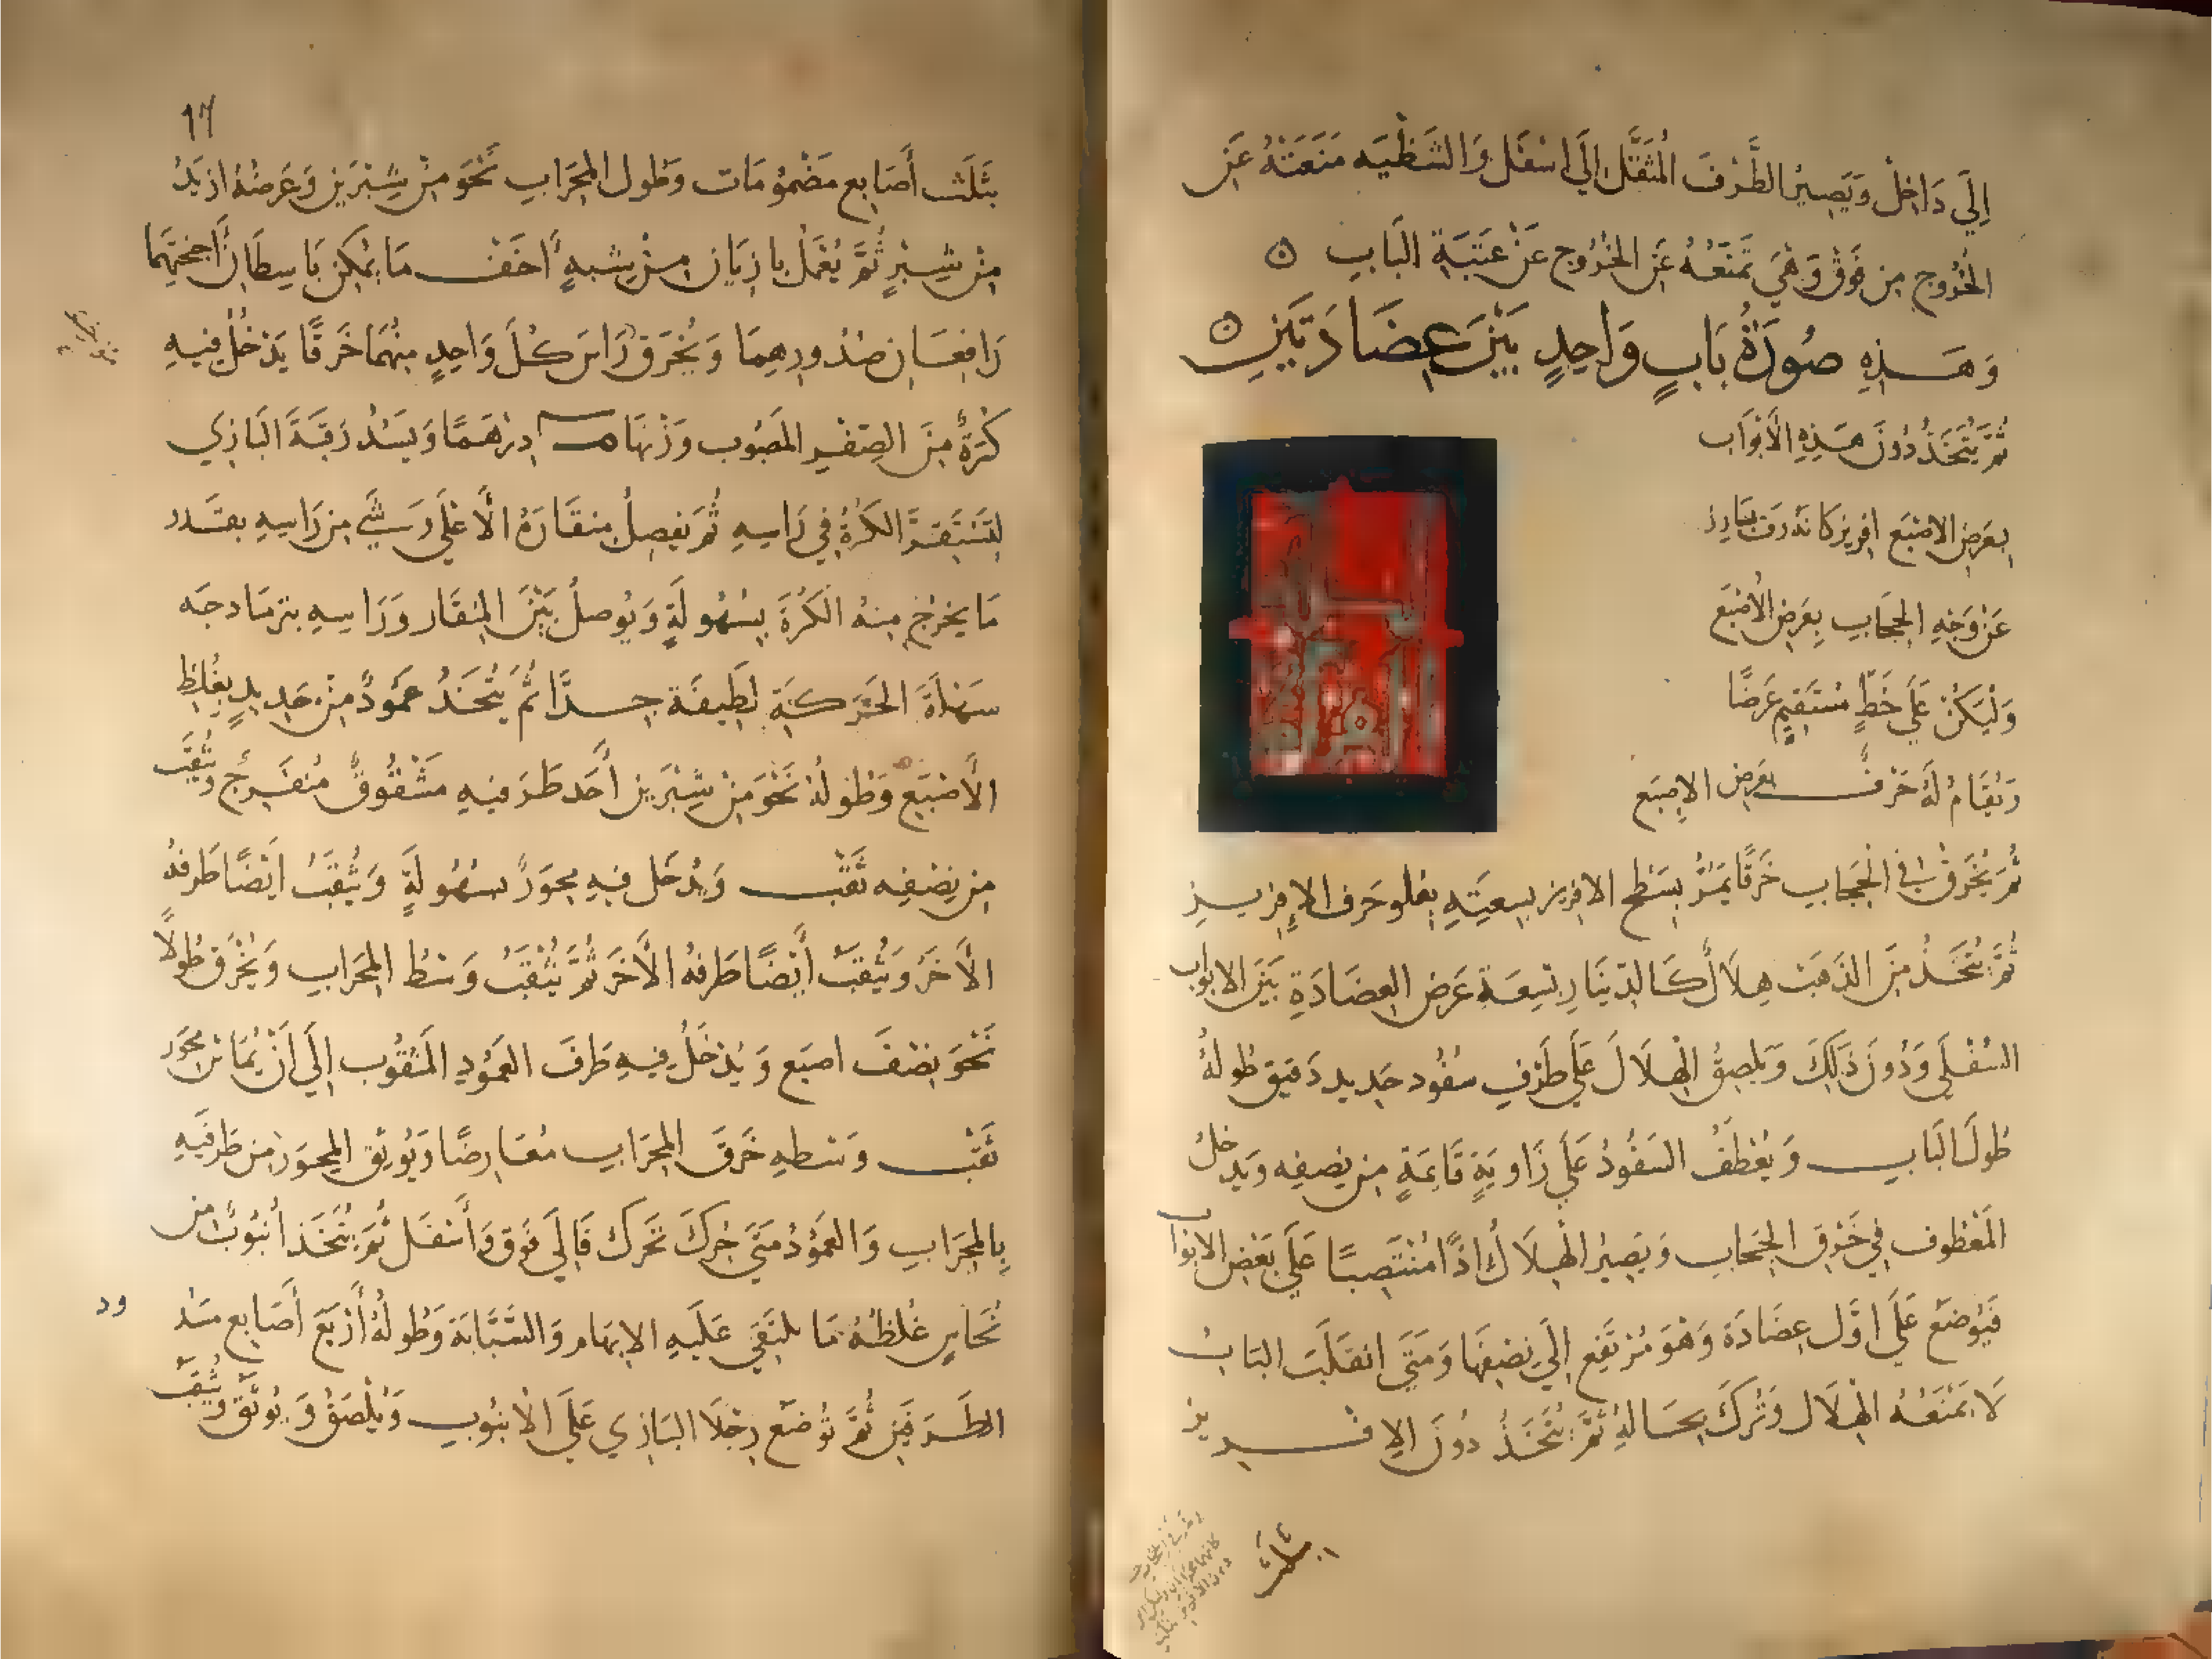 إِلَى دَاخِلْ وَيَصِيرُ الطَّرْفَ المُثَقَّلَ إِلَى اسْفَل وَالشَظْيَه مَنَعَتْهُ عَن
الخُرُوجِ مِن فَوْق وَهِيَ تَمْنَعُهُ عَنِ الخُرُوجِ عَنْ عَتَبَةِ البَابِ
وَهَذِهِ صُورَةُ بَابٍ وَاحِدٍ بَيْنَ عِضَادَتَيْنِ
ثُمَّ يُتَّخَذُ دُونَ هَذِهِ الأَبْوَاب
بِعَرضِ الاصْبَع افريز كانه رف بَارِز
عَنْ وَجْهِ الحِجَابِ بِعَرضِ الأصْبَع
وَلْيَكُنْ عَلَى خَطٍّ مُسْتَقِيمٍ عَرَضًا
وَيُقَامُ لَهُ حَرْفٌ بعَرضِ الاِصبَع
ثُمَّ يُخرَقُ فِي الحِجَابِ خَرقًا يَمُرُّ بِسَطحِ الافريز بِسِعَتِهِ بِعُلو حَرف الاِفريز
ثُمَّ يُتَّخَذُ مِنَ الذَهَبِ هِلَالٌ كَالدِّينَارِ بِسِعَةِ عَرض العِضَادَةِ بَيْنَ الابواب
السُفْلَى وَدُونَ ذَلِكَ وَيُلصِقُ الهِلَالَ عَلَى طَرْفِ سَفُّود حَدِيد دَقيق طُولُهُ
طُولَ البَابِ وَيُعْطَفُ السَفُّودُ عَلَى زَاوِيَةٍ قَائِمَةٍ مِن نِصفِهِ وَيَدخلُ
المَعْطُوف فِي خَرْقِ الحِجَابِ وَيَصِيرُ الهِلَالُ إِذًا مُنْتَصِبًا عَلَى بَعْضِ الابواب
فَيُوضَعُ عَلَى اوَّل عِضَادَة وَهْوَ مُرْتَفِع إِلَى نِصْفِهَا وَمَتَى انقَلَبَ البَابُ
لَا يَمْنَعُهُ الهِلَال وَتُرِكَ بِحَالِهِ ثُمَّ يُتَّخَذُ دُونَ الاِفريز
١٦
بثَلَث أَصَابع مَضْمُومَات وَطُول المِحْرَابِ نَحْوَ مِنْ شِبْرَيْنِ وَعَرضُهُ ازيَدُ
مِنْ شِبْرٍ ثُمَّ يُعْمَلُ بازيَان مِنْ شبهٍ أَخَفّ مَا يُمْكِن بَاسِطَان أَجْنِحَتِهمَا
رَافِعَان صُدُورهِمَا وَيُخْرَق رَاسَ كُلّ وَاحِدٍ مِنهُمَا خَرقًا يَدْخُلُ فِيهِ
كُرَةٌ مِنَ الصِفْرِ المَصبُوب وَزْنهَا درهَمًا وَيَسُدُّ رَقَبَةَ البَازِي
لِتَسْتَقِرَّ الكُرَةُ فِي رَاسِهِ ثُمَّ يَفصِلُ مِنقَارَهُ الأَعْلَى وَشَي مِن رَاسِهِ بقَدر
مَا يَخرُج مِنهُ الكُرَةَ بِسُهُولَةٍ وَيُوصلُ بَيْنَ المِنقَار وَرَاسِهِ بنرمادجه
سَهْلَةَ الحَرَكَةِ لَطِيفَة جِدًّا ثُمَّ يُتَّخَذُ عَمُودٌ مِنْ حَدِيدٍ بِغِلَظِ
الأَصْبَع وَطُولُهُ نَحْوَ مِن شِبْرَينِ أَحَد طَرَفيهِ مَشْقُوقٌ مُنفَرِجٌ وَيُثقَبُ
مِن نِصْفِه ثَقْب وَيُدخَل فِيهِ مِحوَرٌ بسُهُولَةٍ وَيُثقَبُ ايْضًا طَرفهُ
الأَخَرُ وَيُثقَبُ أَيْضًا طَرفهُ الأَخَر ثُمَّ يُثقَبُ وَسْطُ المِحرَابِ وَيُخْرَق طُولًا
نَحْوَ نِصْفَ اصبَع وَيُدْخَلُ فِيهِ طَرَف العَمُودِ المَثقُوب إِلَى أَنْ يُمَاس مِحْوَر
ثَقْب وَسْطِهِ خَرقَ المِحرَابِ مُعَارِضًا وَيُوثِق المِحوَر مِن طَرفَيهِ
بِالمِحرَابِ وَالعَمُودُ مَتَى حُرِكَ تَحَرك فَإلَى فَوق وَأَسْفَل ثُمَّ يُتَّخَذ أنبُوبٌ مِن
نُحَاسٍ غُلظُهُ مَا يلتَقي عَلَيهِ الابهَام وَالسَّبَّابَة وَطُولُهُ أَرْبَعَ أَصَابع مَسْدُود
الطَرَفَين ثُمَّ تُوضَع رِجْلَا البَازِي عَلَى الأنبُوبِ وَيُلْصَقُ وَيُوثَق وَيُثقَبُ